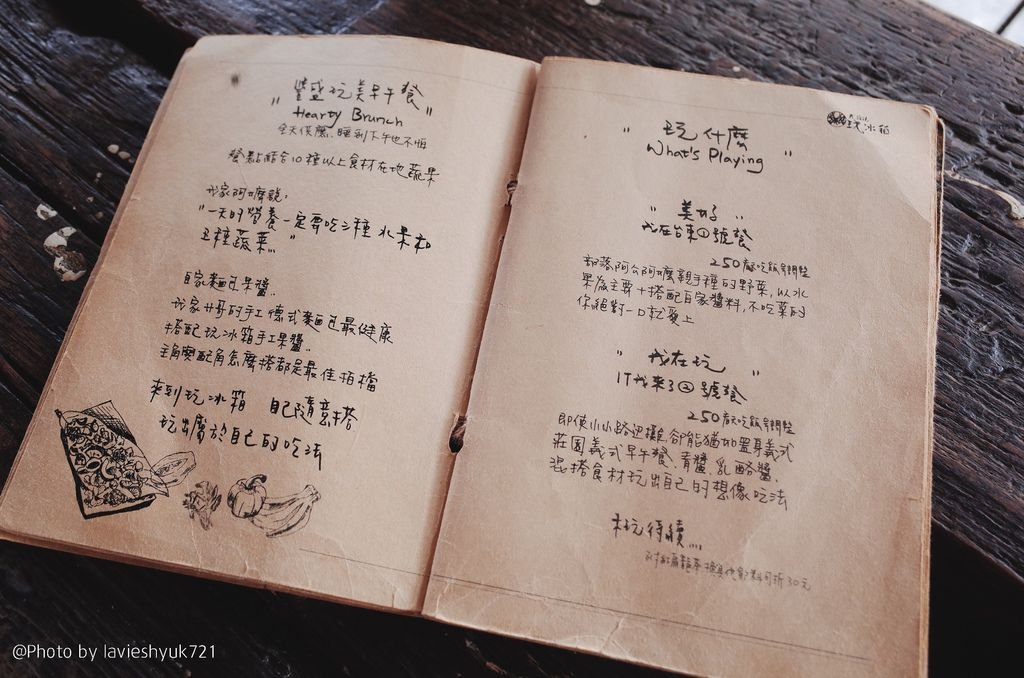 "豐盛玩美早午餐"
Hearty Brunch
全天供應、睡到下午也不怕
餐點結合10種以上食材在地蔬果
我家阿嬤說:
"一天的營養一定要吃三種水果和
五種蔬菜..."
自家麵包果醬.
我家 哥的手工德式麵包最健康
搭配玩冰箱手工果醬.
主角與配角怎麼搭都是最佳拍檔
來到玩冰箱 自己隨意搭
玩出屬於自己的吃法
玩冰箱
"玩什麼"
What's Playing
"美好"
我在台東①號餐
250
部落阿公阿嬤親手種的野菜,以水
果為主要+搭配自家醬料,不吃菜的
你絕對一口就愛上
"我在玩"
IT我來了②號餐
250
即使小小路邊攤,卻能猶如置身義式
莊園義式早午餐、青醬、乳酪醬、
混搭食材玩出自己的想像吃法
未玩待續...
可折30元
@Photo by lavieshyuk721